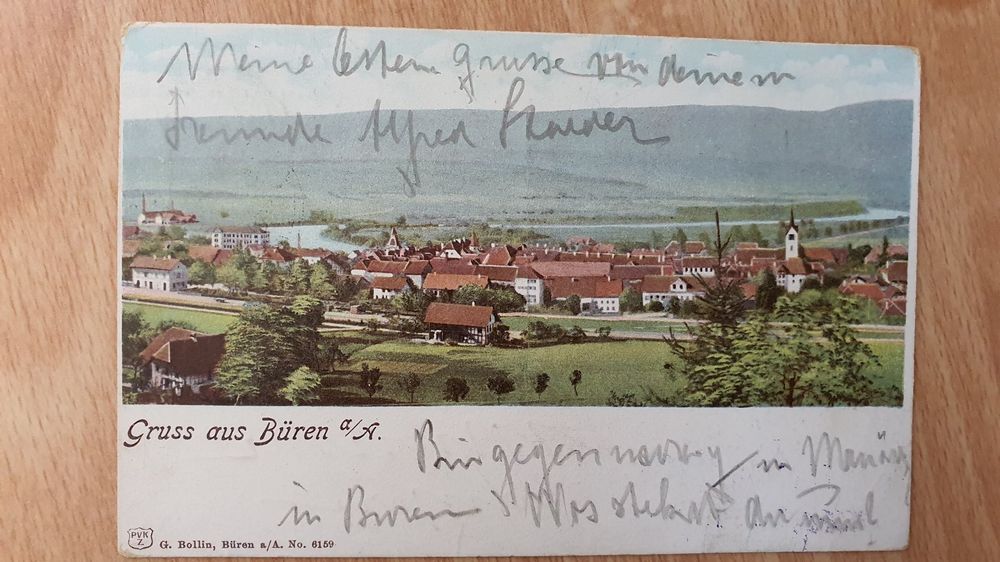 Meine besten Grüsse von deinem
Freunde Alfred Stauder
Gruss aus Büren a/A.
Bin gegenwärtig in
in Büren Was du
PVK
Z.
G. Bollin, Büren a/A. No. 6159